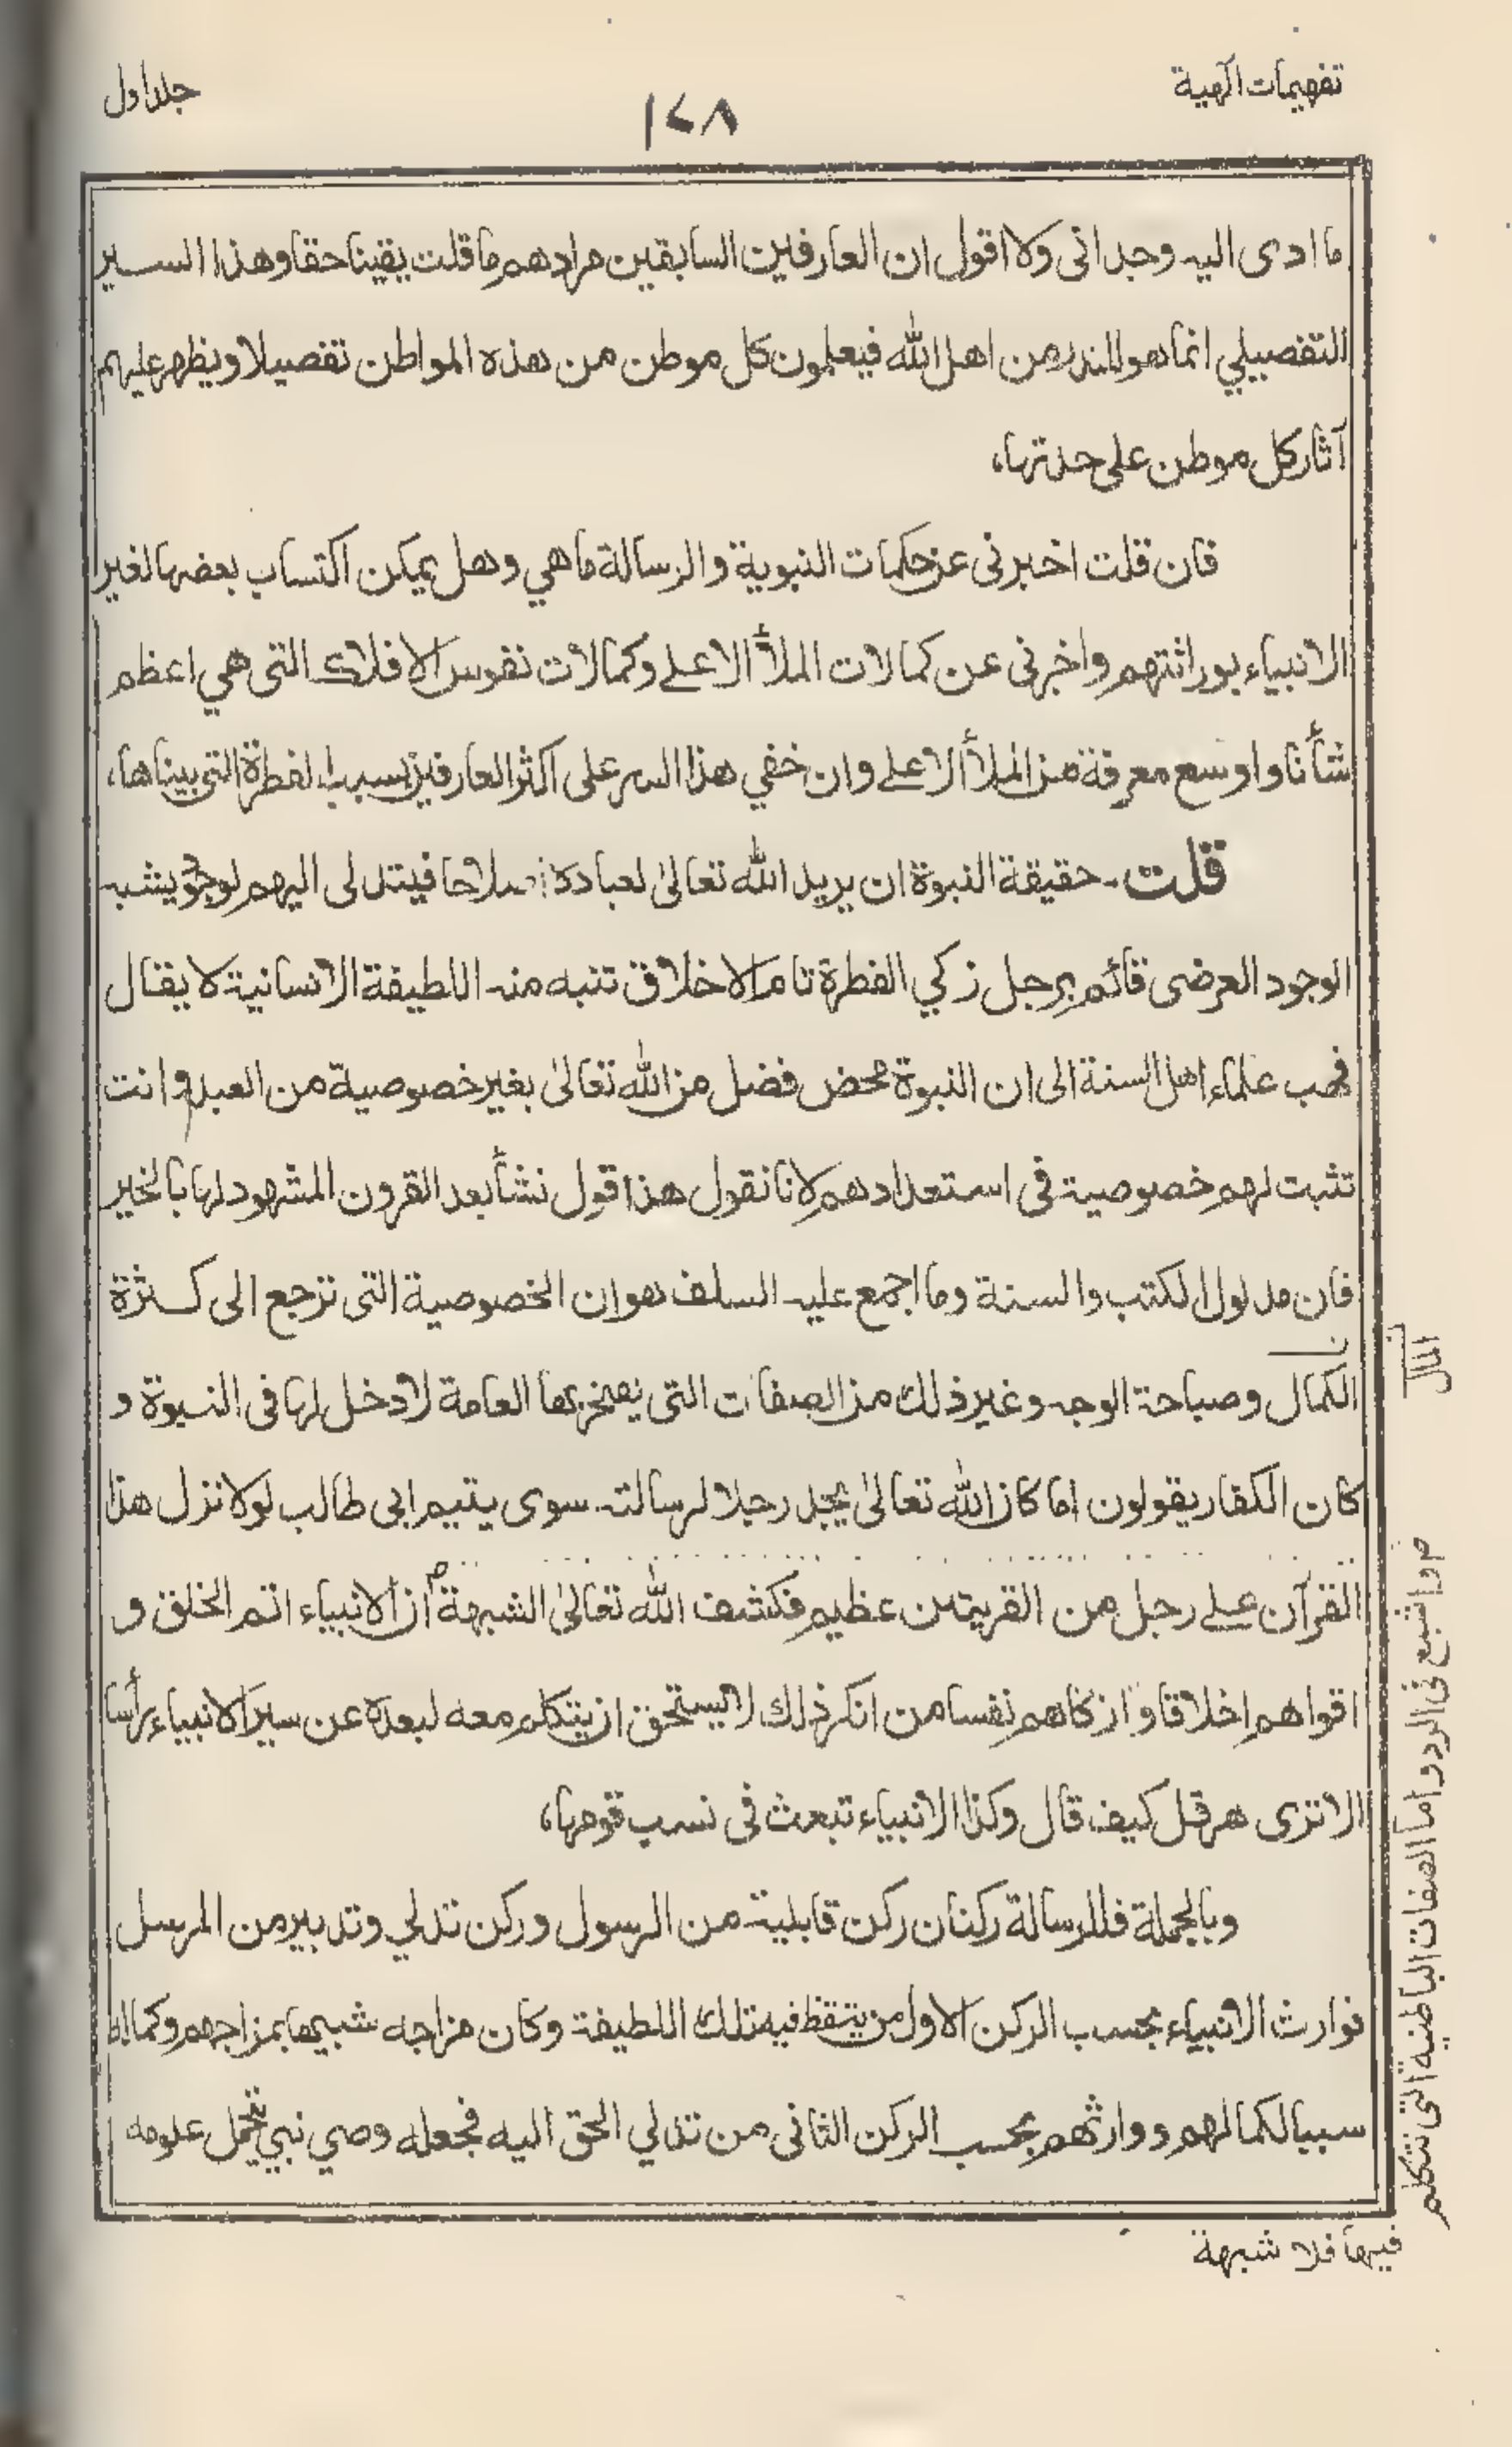 تفهيمات الٓهية
١٤٨
جلد اول
ما ادى اليه وجدانى ولا اقول ان العارفين السابقين مرادهم ما قلت يقينا حقا وهذا السير
التفصيلي انما هو للندر من اهل الله فيعلمون كل موطن من هذه المواطن تفصيلا ويظهر عليهم
آثار كل موطن على حدتها،
فان قلت اخبرنى عن حكمات النبوية والرسالة ما هي وهل يمكن اكتساب بعضها لغير
الانبياء بوراثتهم واخبرنى عن كمالات الملأ الاعلے وكمالات نفوس الافلاك التى هي اعظم
شأنا واوسع معرفة من الملأ الاعلے وان خفي هذا السر على اكثر العارفين بسبب الفطرة التى بيناها،
قلت۔ حقيقة النبوة ان يريد الله تعالىٰ لعباده اصلاحا فيتدلى اليهم لوجود يشبه
الوجود العرضى قائم برجل زكي الفطرة تام الاخلاق تنبه منه اللطيفة الانسانية لا يقال
فهب علماء اهل السنة الى ان النبوة محض فضل من الله تعالىٰ بغير خصوصية من العبد وانت
تثبت لهم خصوصية فى استعدادهم لانا نقول هذا قول نشأ بعد القرون المشهود لها بالخير
فان مدلول الكتب والسنة وما اجمع عليه السلف هو ان الخصوصية التى ترجع الى كثرة
الكمال وصباحة الوجه وغير ذلك من الصفات التى يفتخر بها العامة لا دخل لها فى النبوة و
كان الكفار يقولون اما كان الله تعالىٰ يجد رجلا لرسالته سوى يتيم ابى طالب لولا نزل هذا
القرآن علے رجل من القريتين عظيم فكشف الله تعالىٰ الشبهة ان الانبياء اتم الخلق و
اقواهم اخلاقا وازكاهم نفسا من انكر ذلك لا يستحق ان يتكلم معه لبعده عن سير الانبياء رأسا
الا ترى هرقل كيف قال وكذا الانبياء تبعث فى نسب قومها،
وبالجملة فللرسالة ركنان ركن قابلية من الرسول وركن تدلي وتدبير من المرسل
فوارث الانبياء بحسب الركن الاول من يتيقظ فيه تلك اللطيفة وكان مزاجه شبيها بمزاجهم وكماله
سببا لكمالهم ووارثهم بحسب الركن الثانى من تدلي الحق اليه فجعله وصي نبي تحمل علومه
المال
واشبع فى الرد واما الصفات الباطنية التى نتكلم
فيها فلا شبهة